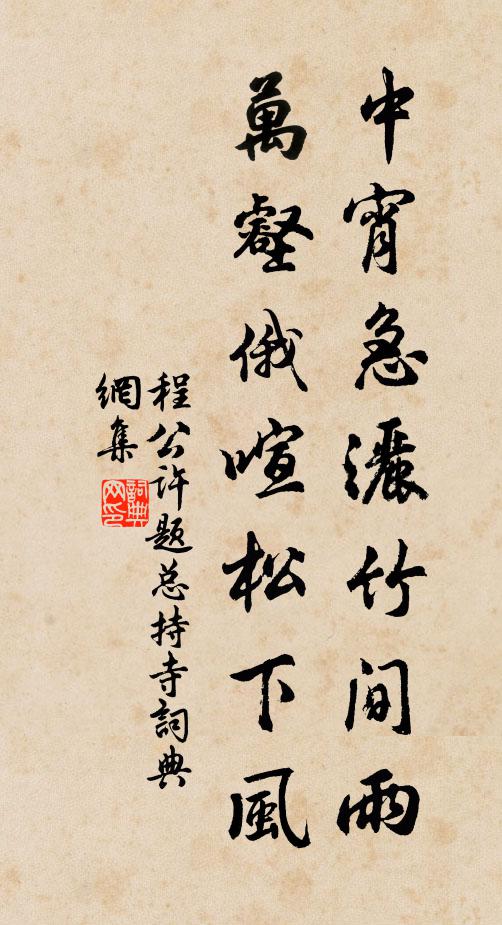 中宵急灑竹间雨
萬壑俄喧松下風
程公许题总持寺詞典
網集
詞典網印